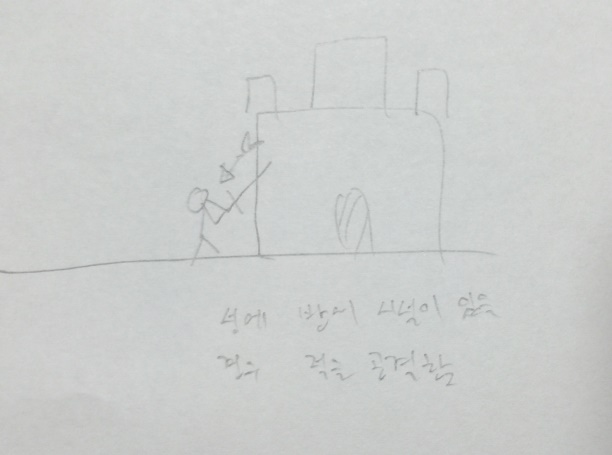 성에 방어 시설이 있을
경우 적을 공격함